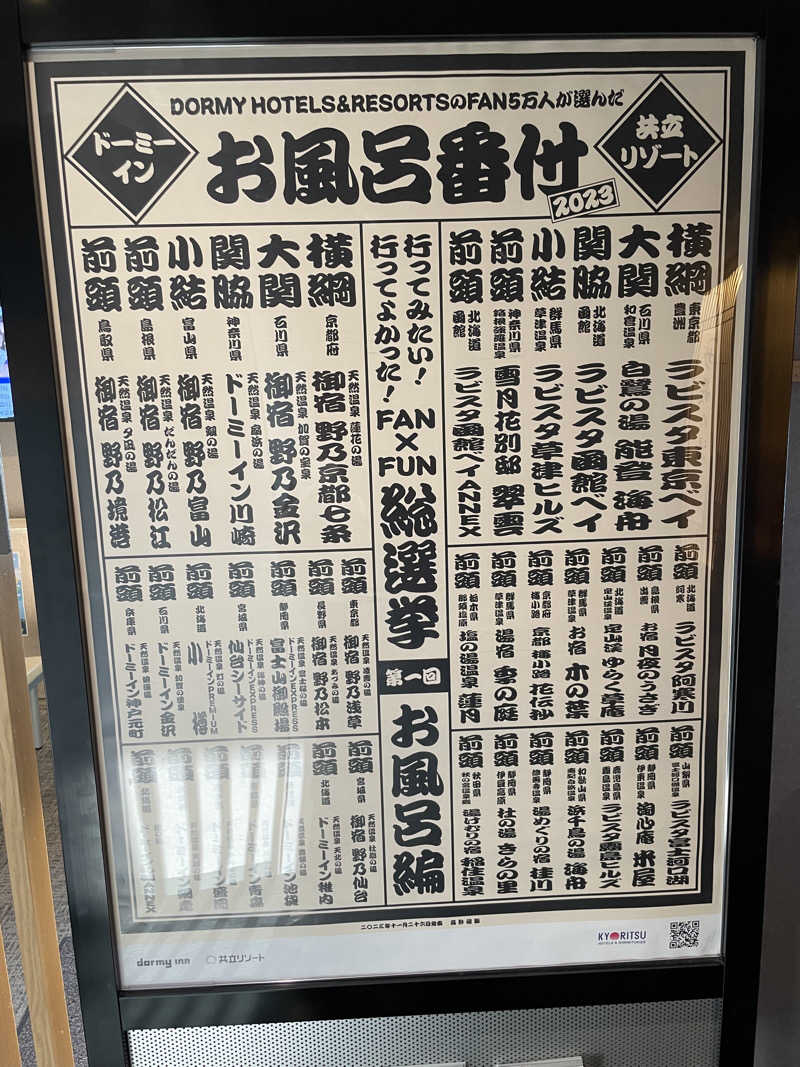 DORMY HOTELS&RESORTSのFAN5万人が選んだ
お風呂番付
2023
共立
リゾート
ドーミー
イン
横綱 東京都 豊洲 ラビスタ東京ベイ
大関 石川県 和倉温泉 白鷺の湯 能登 海舟
関脇 北海道 函館 ラビスタ函館ベイ
小結 群馬県 草津温泉 ラビスタ草津ヒルズ
前頭 神奈川県 箱根強羅温泉 雪月花別邸 翠雲
前頭 北海道 函館 ラビスタ函館ベイANNEX
前頭 北海道 阿寒 ラビスタ阿寒川
前頭 島根県 出雲 お宿 月夜のうさぎ
前頭 北海道 定山渓温泉 定山渓 ゆらく草庵
前頭 群馬県 草津温泉 お宿 木の葉
前頭 京都府 梅小路 京都 梅小路 花伝抄
前頭 群馬県 草津温泉 湯宿 季の庭
前頭 栃木県 那須塩原 塩の湯温泉 蓮月
前頭 山梨県 富士河口湖温泉 ラビスタ富士河口湖
前頭 静岡県 伊東温泉 淘心庵 米屋
前頭 鹿児島県 霧島温泉 ラビスタ霧島ヒルズ
前頭 和歌山県 南紀白浜温泉 浜千鳥の湯 海舟
前頭 静岡県 修善寺温泉 湯めぐりの宿 桂川
前頭 静岡県 伊豆高原 杜の湯 きらの里
前頭 秋田県 秋の宮温泉郷 湯けむりの宿 稲住温泉
行ってみたい!
行ってよかった!
FAN×FUN
総選挙
第一回
お風呂編
横綱 京都府 天然温泉 蓮花の湯 御宿 野乃京都七条
大関 石川県 天然温泉 加賀の宝泉 御宿 野乃金沢
関脇 神奈川県 天然温泉 扇浜の湯 ドーミーイン川崎
小結 富山県 天然温泉 剱の湯 御宿 野乃富山
前頭 島根県 天然温泉 だんだんの湯 御宿 野乃松江
前頭 鳥取県 天然温泉 夕凪の湯 御宿 野乃境港
前頭 東京都 天然温泉 凌雲の湯 御宿 野乃浅草
前頭 長野県 天然温泉 あづみの湯 御宿 野乃松本
前頭 静岡県 天然温泉 富士桜の湯 ドーミーインEXPRESS 富士山御殿場
前頭 宮城県 天然温泉 海神の湯 ドーミーインEXPRESS 仙台シーサイド
前頭 北海道 天然温泉 灯の湯 ドーミーインPREMIUM 小樽
前頭 石川県 天然温泉 加賀の湧泉 ドーミーイン金沢
前頭 兵庫県 天然温泉 浪漫湯 ドーミーイン神戸元町
前頭 宮城県 天然温泉 杜都の湯 御宿 野乃仙台
前頭 北海道 天然温泉 天北の湯 ドーミーイン稚内
前頭 ドーミーイン池袋
前頭
前頭
前頭
前頭 北海道
二〇二三年十一月二十六日発表
dormy inn
共立リゾート
KYORITSU
HOTELS & DORMITORIES